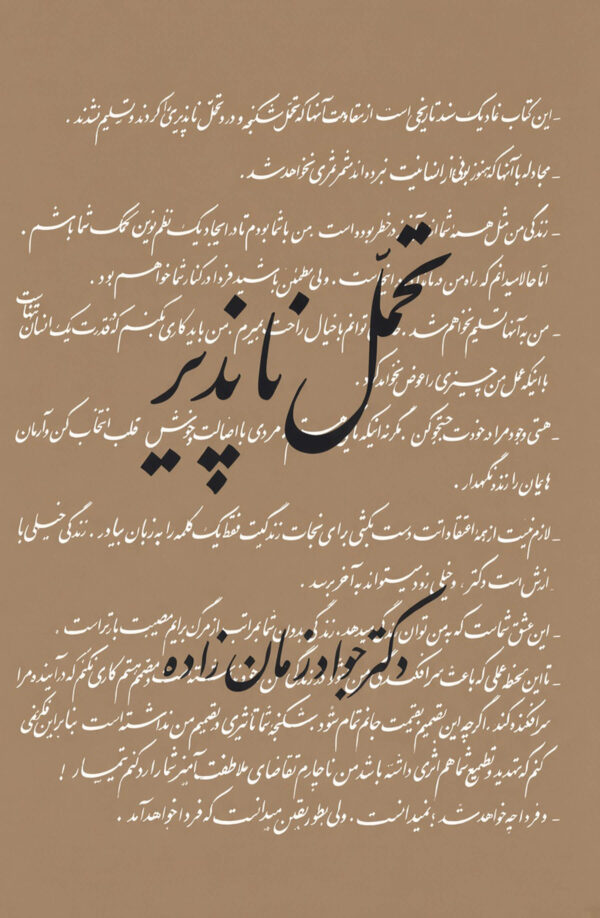 - این کتاب نمادیک سند تاریخی است از مقاومت آنها که تحمل شکنجه و درد و تحمل ناپذیری را کردند و تسلیم نشدند .
- مجادله با آنها که هنوز بوئی از انسانیت نبرده اند ثمر ثمری نخواهد شد .
- زندگی من مثل همه شما در خطر بوده است . من با شما بودم تا در ایجاد یک نظم نوین کمک شما باشم .
اما حالا میدانم که راه من در است . ولی مطمئن باشید فردا در کنار شما خواهم بود .
تحمل ناپذیر
- من به آنها تسلیم نخواهم شد . توانم با خیال راحت بمیرم . من باید کاری بکنم که قدرت یک انسان
با اینکه عمل من چیزی را عوض نخواهد کرد .
- هستی وجود مرا در خودت جستجو کن . بگر نه اینکه مردی با اصالت خویش قلب انتخاب کن و آرمان
هایمان را زنده نگهدار .
- لازم نیست از همه اعتقاداتت دست بکشی برای نجات زندگیت فقط یک کلمه را به زبان بیاور . زندگی خیلی با
ارزش است دکتر . و خیلی زود میتواند به آخر برسد .
- این عشق شماست که به من توان میدهد . زندگی بدون شما بمراتب از مرگ برایم مصیبت بارتر است .
دکتر جواد زمان زاده
- تا این لحظه عملی که باعث سرافکندگی من در زندگی مصمم هستم کاری نکنم که در آینده مرا
سرافکنده کند . اگر چه این تصمیم بقیمت جانم تمام شود . شکنجه شما تاثیری در تصمیم من نداشته است بنابراین
کنم که تهدید و تطمیع شما هم اثری داشته باشد من ناچارم تقاضای ملاطفت آمیز شما را رد کنم تیمسار !
- و فردا چه خواهد شد ؟ نمیدانست . ولی بطور یقین میدانست که فردا خواهد آمد .